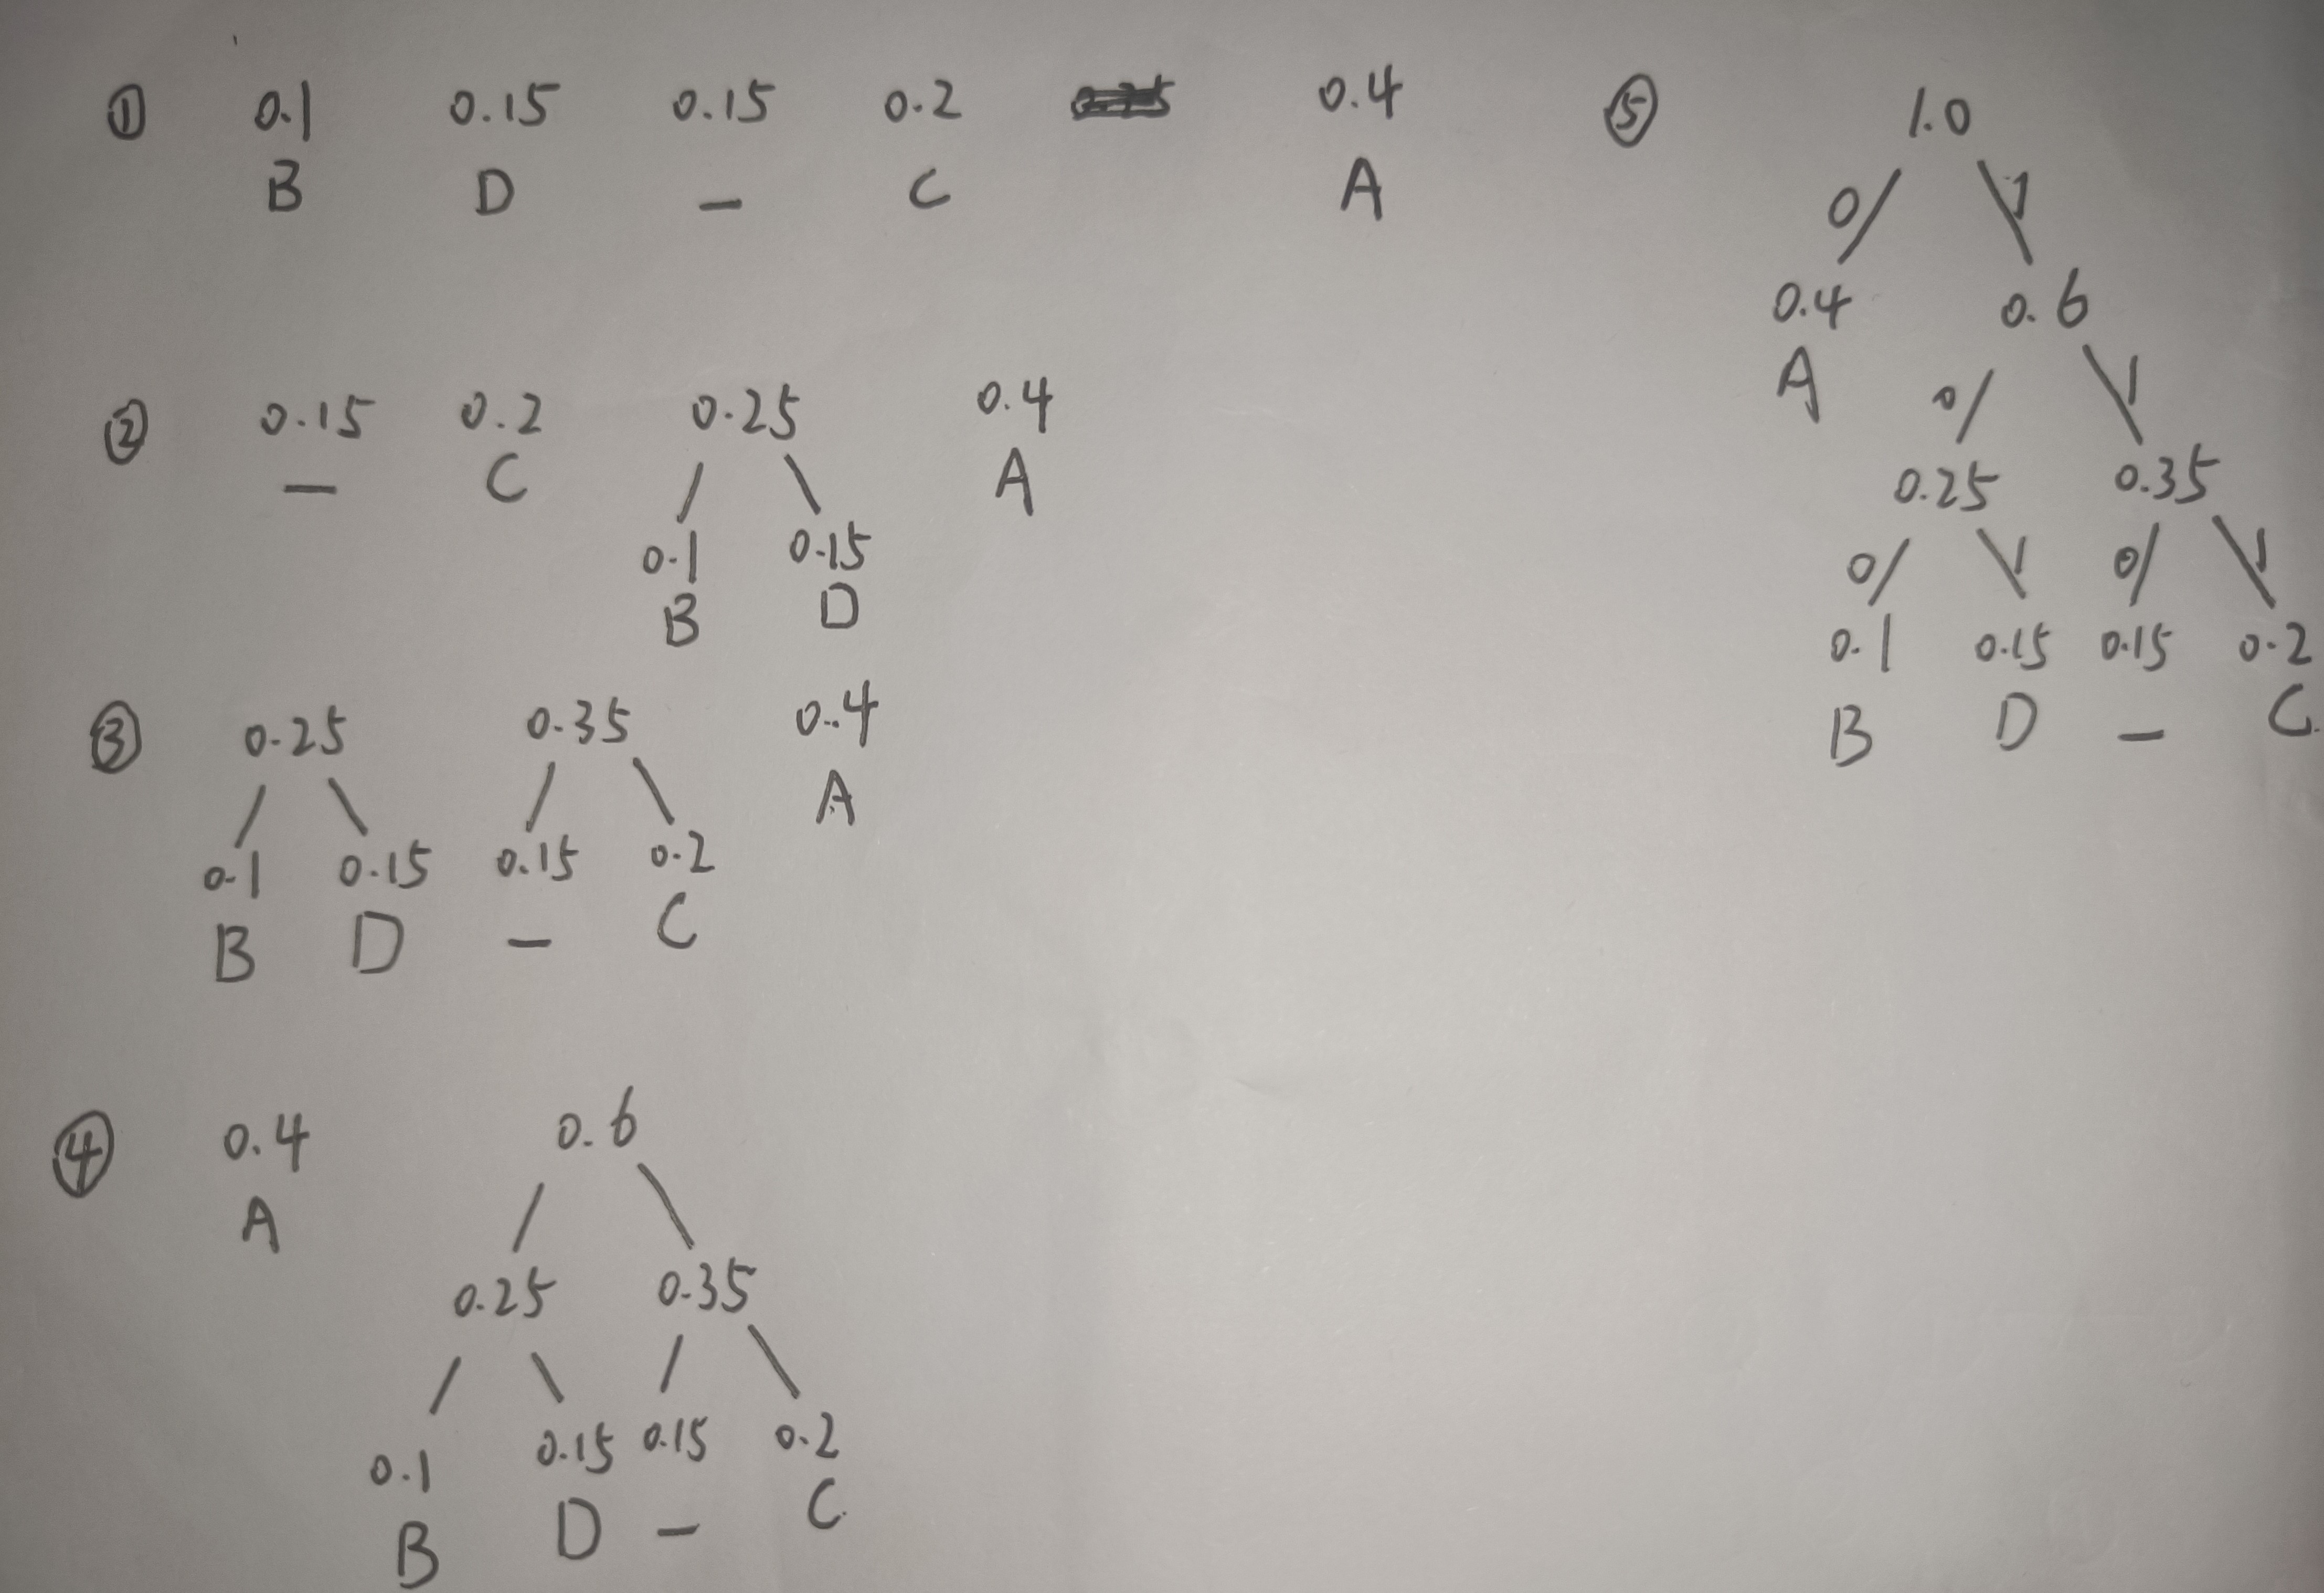 ① 0.1 0.15 0.15 0.2 0.4
B D _ C A
② 0.15 0.2 0.25 0.4
_ C A
0.1 0.15
B D
③ 0.25 0.35 0.4
A
0.1 0.15 0.15 0.2
B D _ C
④ 0.4 0.6
A
0.25 0.35
0.1 0.15 0.15 0.2
B D _ C
⑤ 1.0
0 1
0.4 0.6
A 0 1
0.25 0.35
0 1 0 1
0.1 0.15 0.15 0.2
B D _ C